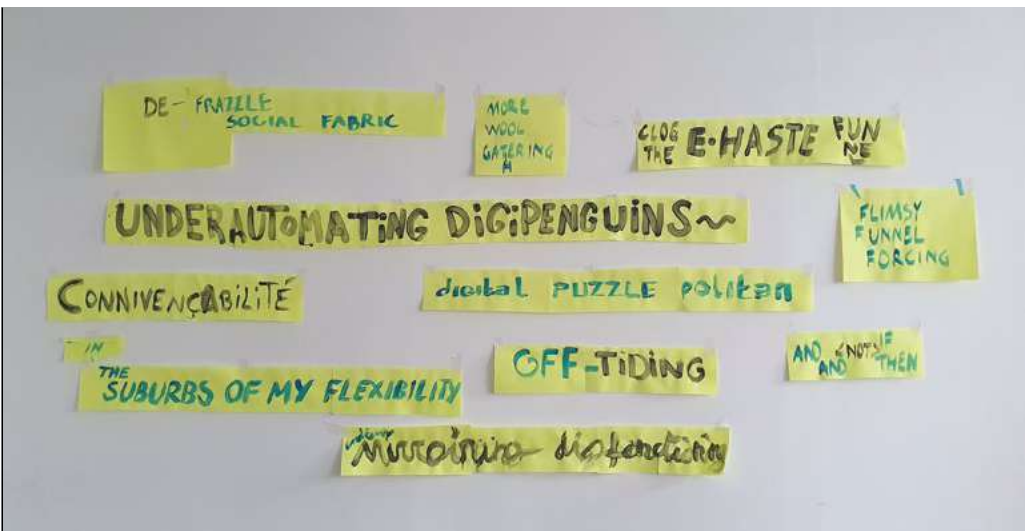 DE-FRAZLE
SOCIAL FABRIC
MORE
WOOL
GATERING
H
CLOG
THE
E·HASTE
FUN
NE
UNDERAUTOMATING DIGIPENGUINS~
FLIMSY
FUNNEL
FORCING
CONNIVENÇABILITÉ
digital PUZZLE
IN
THE
SUBURBS OF MY FLEXIBILITY
OFF-TIDING
AND <NOT> IF
AND THEN